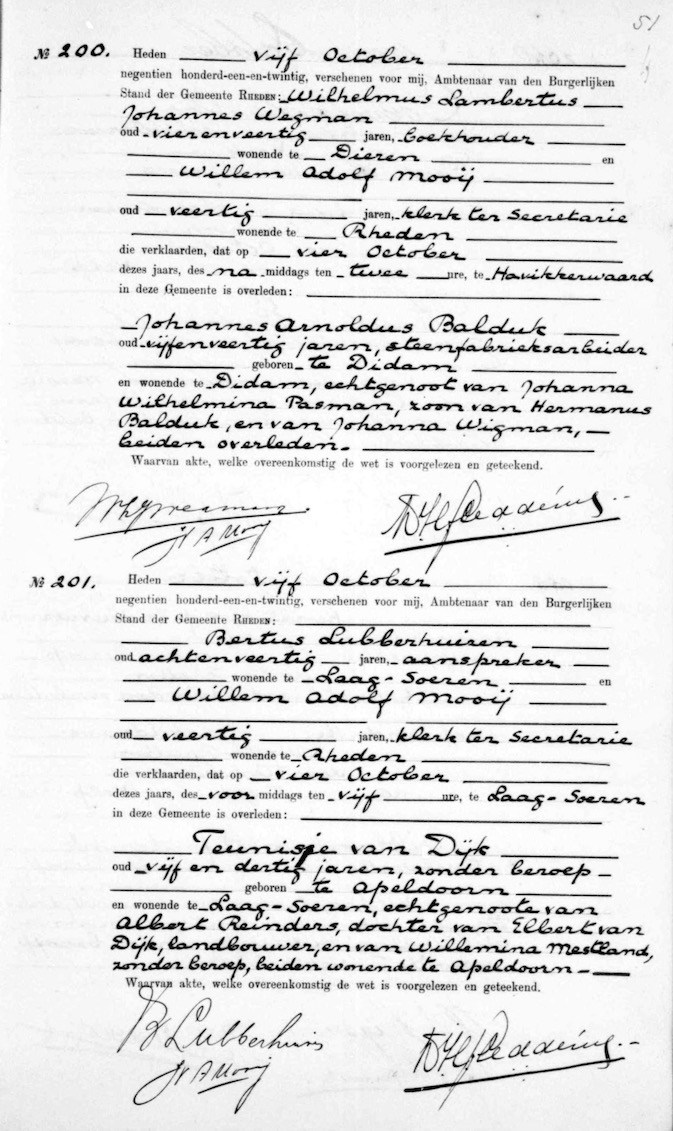 51
№ 200. Heden vijf October
negentien honderd-een-en-twintig, verschenen voor mij, Ambtenaar van den Burgerlijken
Stand der Gemeente RHEDEN: Wilhelmus Lambertus
Johannes Wegman
oud vierenveertig jaren, boekhouder
wonende te Dieren en
Willem Adolf Mooij
oud veertig jaren, klerk ter Secretarie
wonende te Rheden
die verklaarden, dat op vier October
dezes jaars, des na middags ten twee ure, te Havikkerwaard
in deze Gemeente is overleden:
Johannes Arnoldus Balduk
oud vijfenveertig jaren, steenfabrieksarbeider
geboren te Didam
en wonende te Didam, echtgenoot van Johanna
Wilhelmina Pasman, zoon van Hermanus
Balduk, en van Johanna Wigman,
beiden overleden.
Waarvan akte, welke overeenkomstig de wet is voorgelezen en geteekend.
WA Mooij
№ 201. Heden vijf October
negentien honderd-een-en-twintig, verschenen voor mij, Ambtenaar van den Burgerlijken
Stand der Gemeente RHEDEN:
Bertus Lubberhuizen
oud achtenveertig jaren, aanspreker
wonende te Laag-Soeren en
Willem Adolf Mooij
oud veertig jaren, klerk ter Secretarie
wonende te Rheden
die verklaarden, dat op vier October
dezes jaars, des voor middags ten vijf ure, te Laag-Soeren
in deze Gemeente is overleden:
Teunisje van Dijk
oud vijf en dertig jaren, zonder beroep
geboren te Apeldoorn
en wonende te Laag-Soeren, echtgenoote van
Albert Reinders, dochter van Elbert van
Dijk, landbouwer, en van Willemina Mestland,
zonder beroep, beiden wonende te Apeldoorn
Waarvan akte, welke overeenkomstig de wet is voorgelezen en geteekend.
B Lubberhuis
WA Mooij